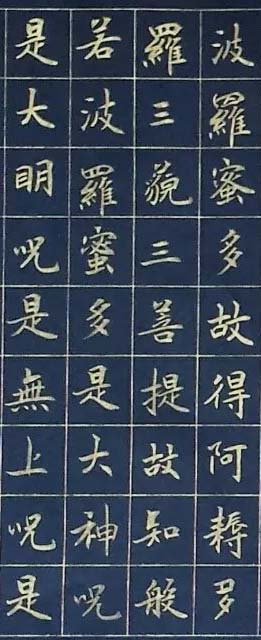 波羅蜜多故得阿耨多
羅三藐三菩提故知般
若波羅蜜多是大神呪
是大明呪是無上呪是